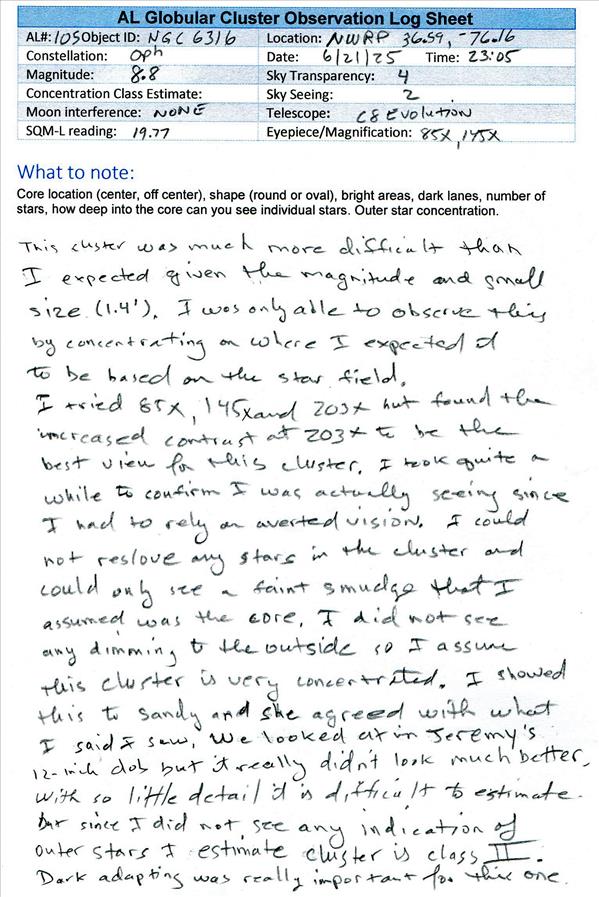 AL Globular Cluster Observation Log Sheet
AL#: 105 Object ID: NGC 6316 Location: NWRP 36.59, -76.16
Constellation: Oph Date: 6/21/25 Time: 23:05
Magnitude: 8.8 Sky Transparency: 4
Concentration Class Estimate: Sky Seeing: 2
Moon interference: NONE Telescope: C8 Evolution
SQM-L reading: 19.77 Eyepiece/Magnification: 85X, 145X
What to note:
Core location (center, off center), shape (round or oval), bright areas, dark lanes, number of
stars, how deep into the core can you see individual stars. Outer star concentration.
This cluster was much more difficult than
I expected given the magnitude and small
size (1.4'). I was only able to observe this
by concentrating on where I expected it
to be based on the star field.
I tried 85X, 145X and 203X but found the
increased contrast at 203X to be the
best view for this cluster. I took quite a
while to confirm I was actually seeing since
I had to rely on averted vision. I could
not reslove any stars in the cluster and
could only see a faint smudge that I
assumed was the core. I did not see
any dimming to the outside so I assume
this cluster is very concentrated. I showed
this to Sandy and she agreed with what
I said I saw. We looked at in Jeremy's
12-inch dob but it really didn't look much better.
With so little detail it is difficult to estimate.
But since I did not see any indication of
outer stars I estimate cluster is class II.
Dark adapting was really important for this one.